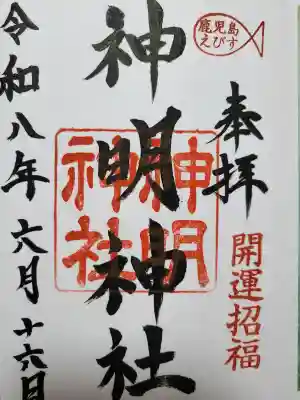 鹿児島
えびす
奉拝
開運招福
神明神社
神明
神社
令和八年六月十六日